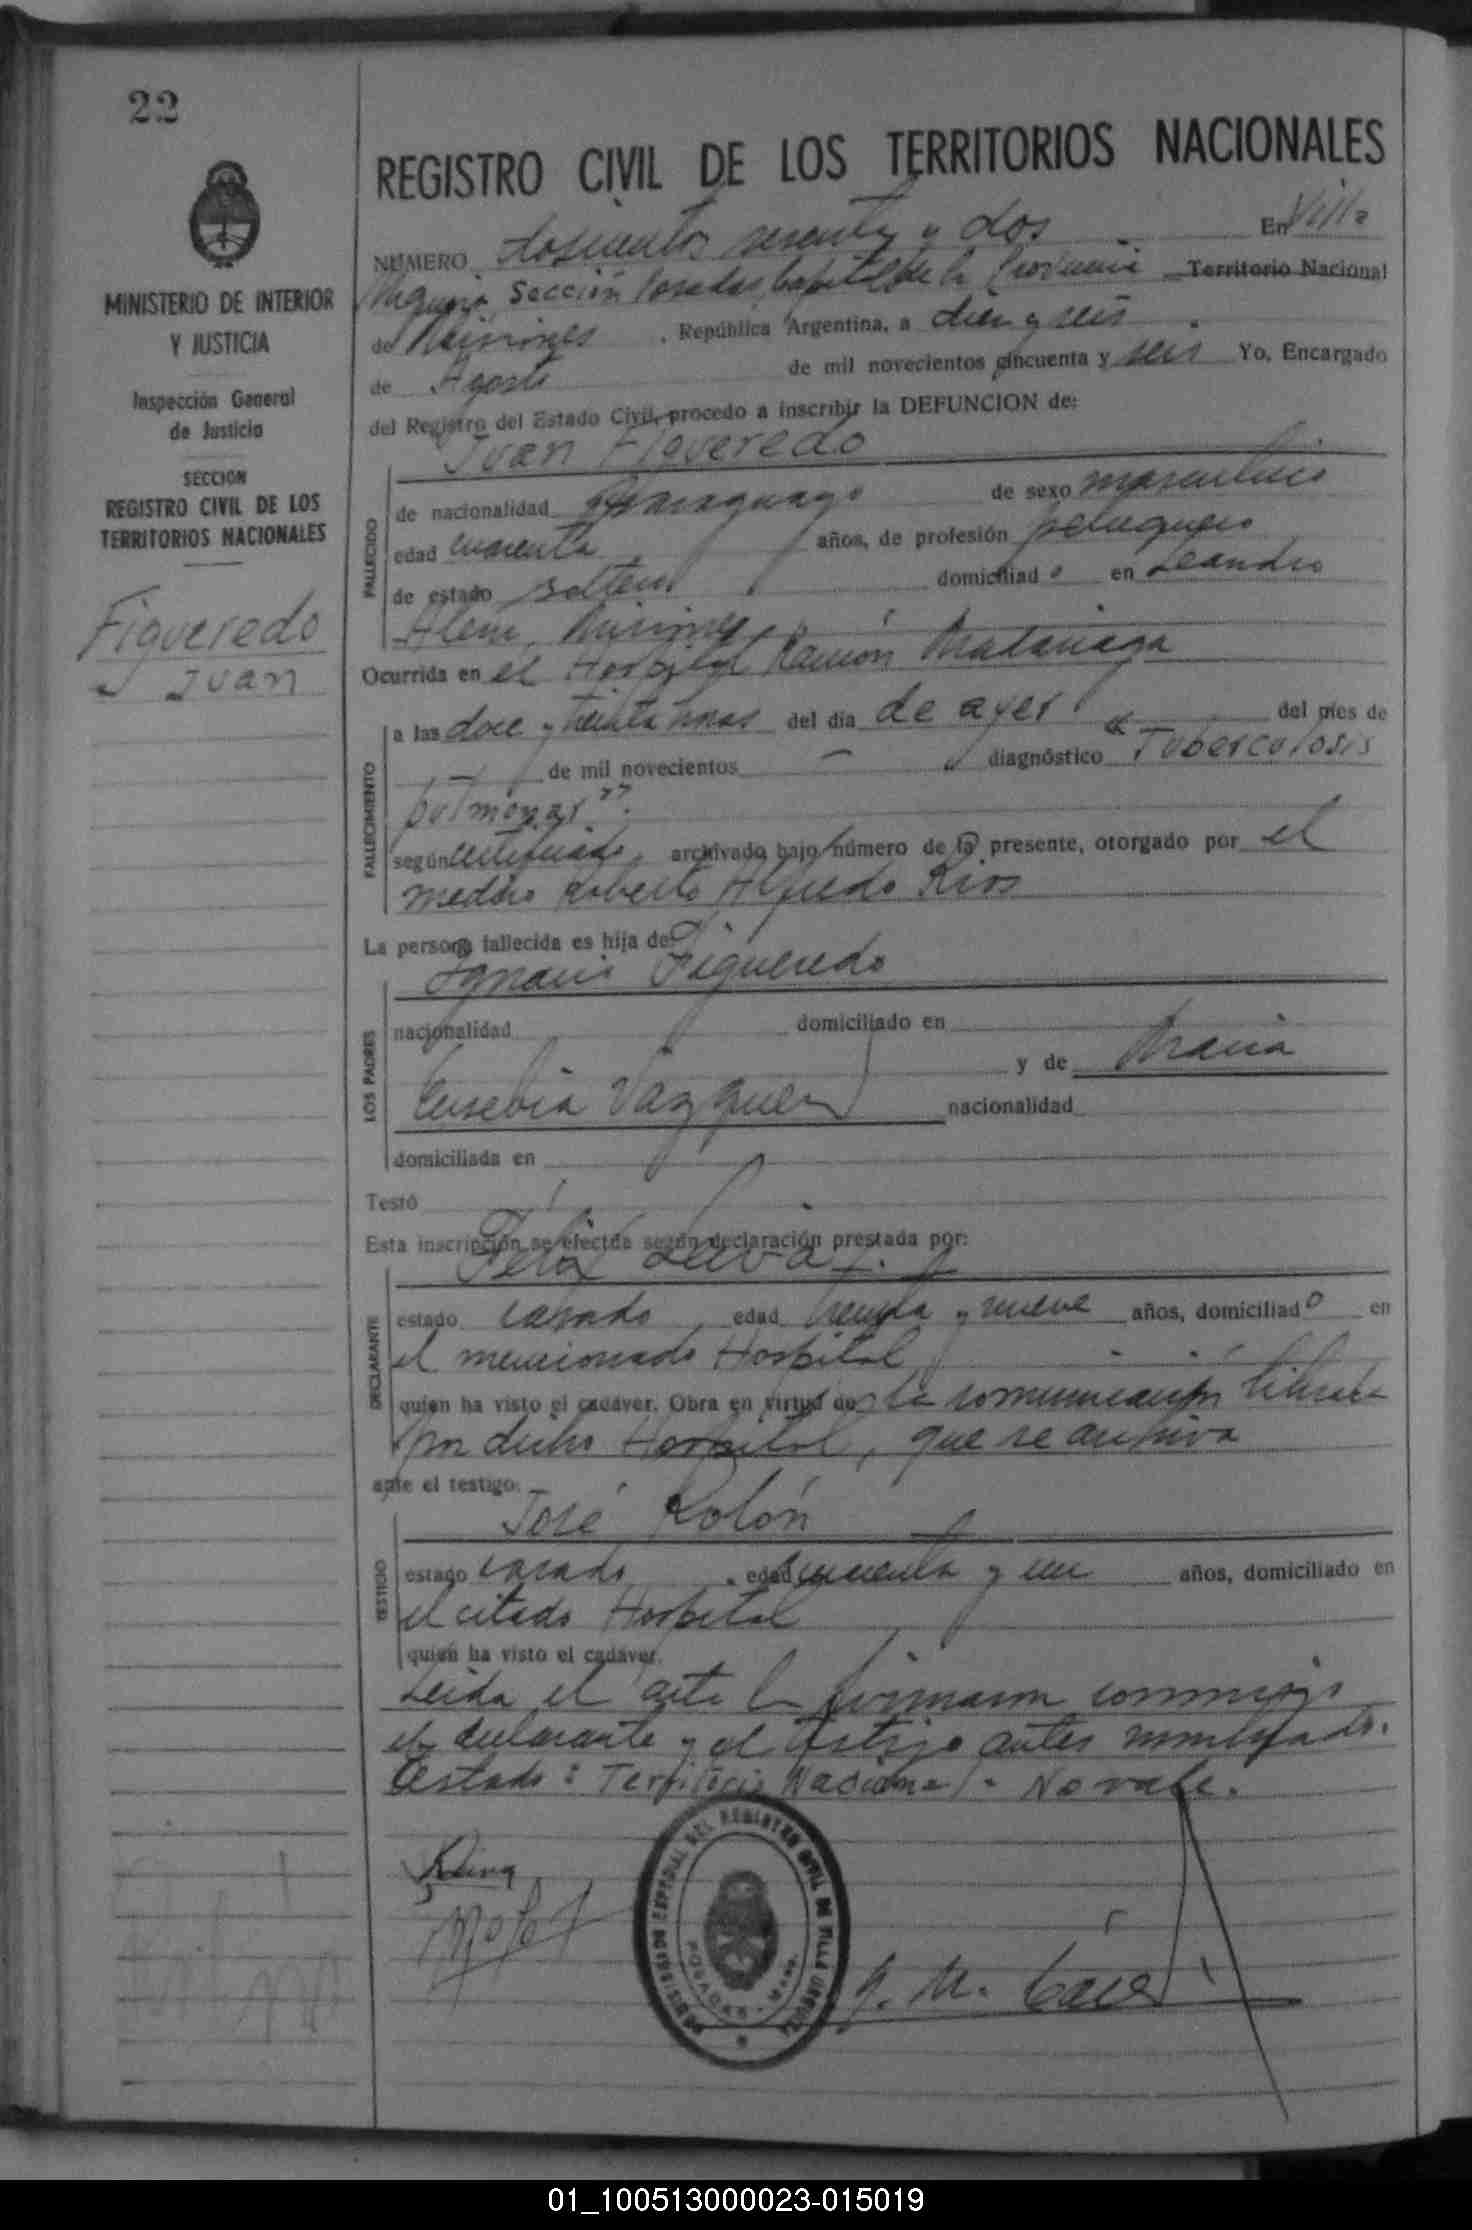 22
REGISTRO CIVIL DE LOS TERRITORIOS NACIONALES
MINISTERIO DE INTERIOR
Y JUSTICIA
Inspección General
de Justicia
SECCION
REGISTRO CIVIL DE LOS
TERRITORIOS NACIONALES
Figueredo
Juan
NUMERO dosciento sesenta y dos En Villa
Sección Posadas, Capital de la Provincia Territorio Nacional
de Misiones, República Argentina, a diez y seis
de Agosto de mil novecientos cincuenta y seis Yo, Encargado
del Registro del Estado Civil, procedo a inscribir la DEFUNCION de:
Juan Figueredo
FALLECIDO
de nacionalidad Paraguayo de sexo masculino
edad cuarenta años, de profesión peluquero
de estado soltero domiciliado en Leandro
Alem, Misiones
Ocurrida en el Hospital Ramón Madariaga
FALLECIMIENTO
a las doce y treinta horas del día de ayer del mes de
de mil novecientos diagnóstico "Tuberculosis
pulmonar".
según certificado archivado bajo número de la presente, otorgado por el
medico Roberto Alfredo Rios
La persona fallecida es hija de:
Ignacio Figueredo
LOS PADRES
nacionalidad domiciliado en
y de Maria
Eusebia Vazquez nacionalidad
domiciliada en
Testó
Esta inscripción se efectúa según declaración prestada por:
Felix Leiva
DECLARANTE
estado casado edad treinta y nueve años, domiciliado en
el mencionado Hospital
quien ha visto el cadáver. Obra en virtud de la comunicación librada
por dicho Hospital, que se archiva
ante el testigo:
José Rolón
TESTIGO
estado casado, edad cuarenta y un años, domiciliado en
el citado Hospital
quien ha visto el cadáver.
Leida el acta la firmaron conmigo
el declarante y el testigo antes nombrado.
Testado: Territorio Nacional - No vale.
DEL REGISTRO CIVIL DE VILLA URQUIZA
POSADAS - Mnes.
01_100513000023-015019